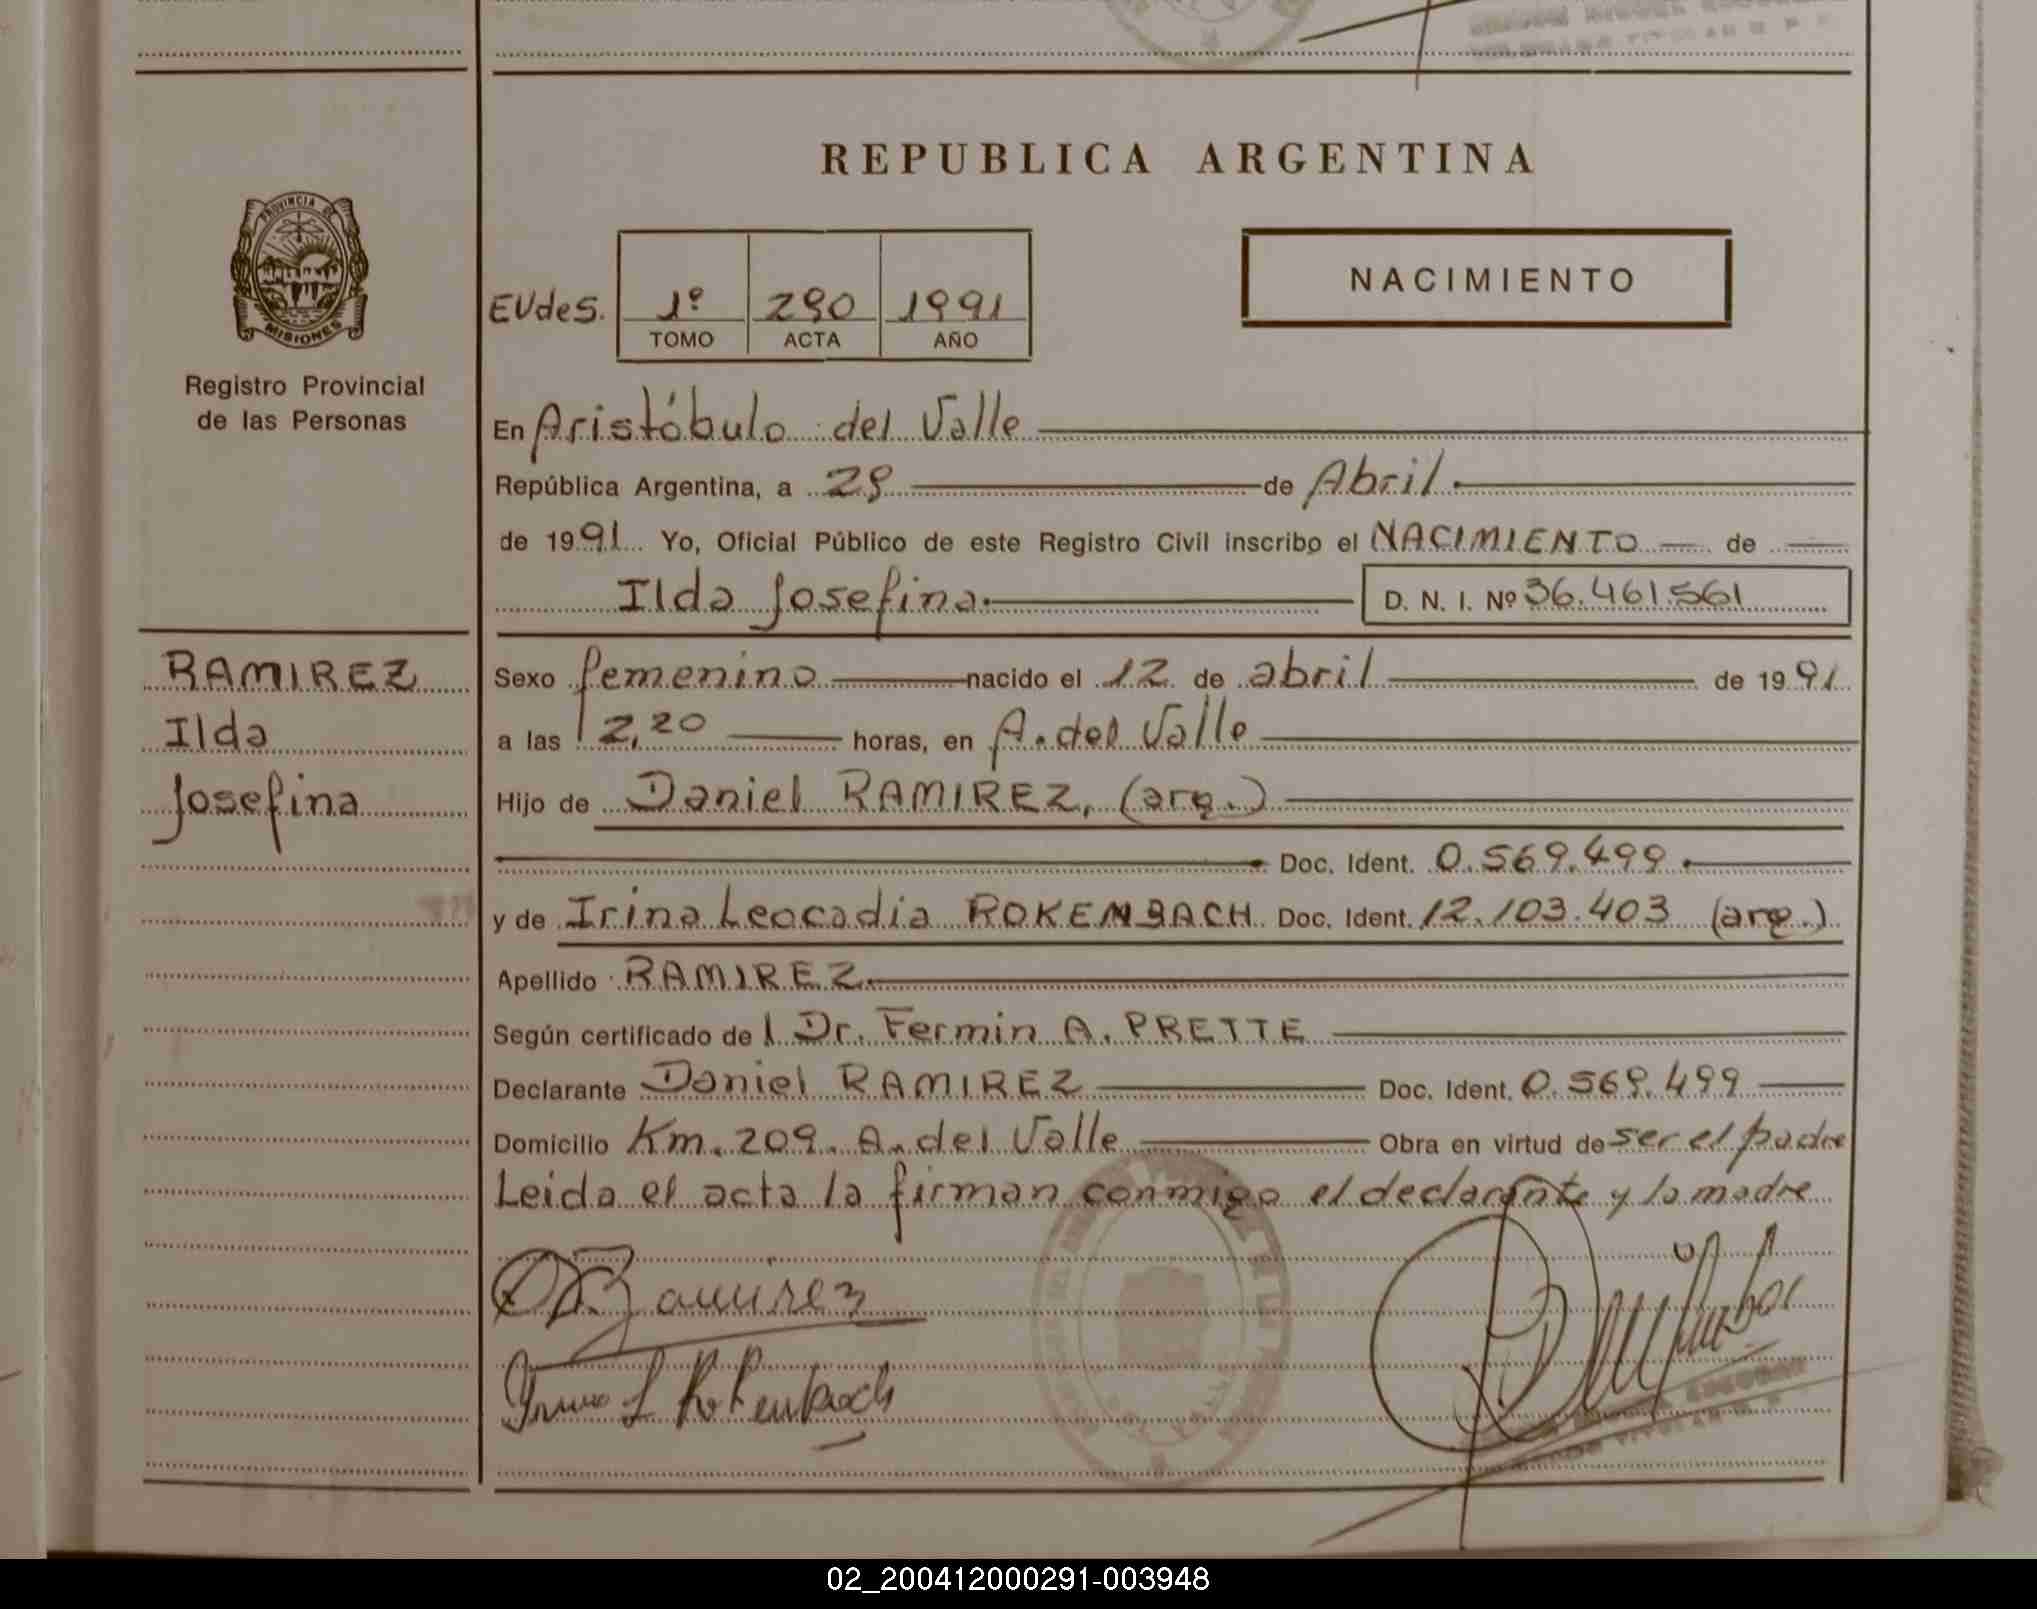 REPUBLICA ARGENTINA
PROVINCIA DE
MISIONES
Registro Provincial
de las Personas
NACIMIENTO
EVdeS. 1º 290 1991
TOMO ACTA AÑO
En Aristóbulo del Valle
República Argentina, a 29 de Abril
de 1991 Yo, Oficial Público de este Registro Civil inscribo el NACIMIENTO de
Ilda Josefina D. N. I. Nº 36.461.561
RAMIREZ
Ilda
Josefina
Sexo femenino nacido el 12 de abril de 1991
a las 12,20 horas, en A. del Valle
Hijo de Daniel RAMIREZ, (arg.)
Doc. Ident. 0.569.499
y de Irina Leocadia ROKEMBACH Doc. Ident. 12.103.403 (arg.)
Apellido RAMIREZ
Según certificado de l Dr. Fermin A. PRETTE
Declarante Daniel RAMIREZ Doc. Ident. 0.569.499
Domicilio Km. 209. A. del Valle Obra en virtud de ser el padre
Leida el acta la firman conmigo el declarante y la madre
Ramirez
L Rokenbach
02_200412000291-003948